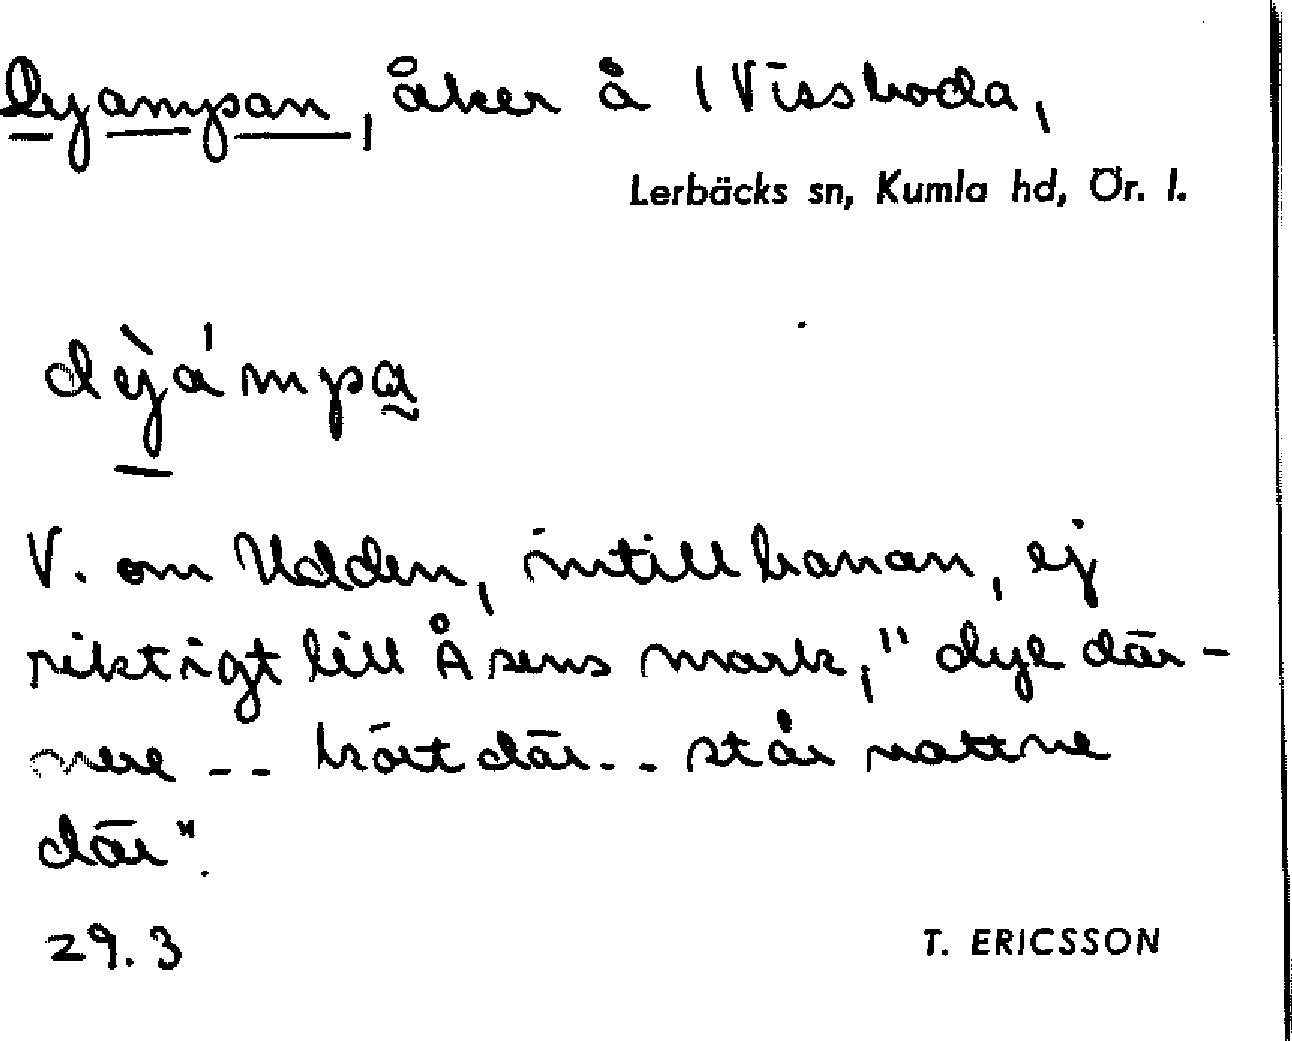 Dyampan, åker å 1 Vissboda,
Lerbäcks sn, Kumla hd, Ör. l.
dỳámpa
V. om Udden, intill banan, ej
riktigt till Åsens mark, "dye där-
nere -- kört där.. står vattne
där".
29.3
T. ERICSSON